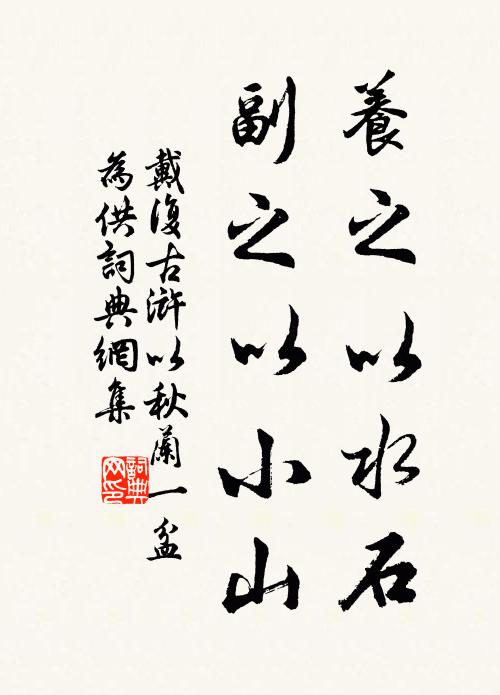 養之以水石
副之以小山
戴復古滸以秋蘭一盆
為供詞典網集
詞典网印